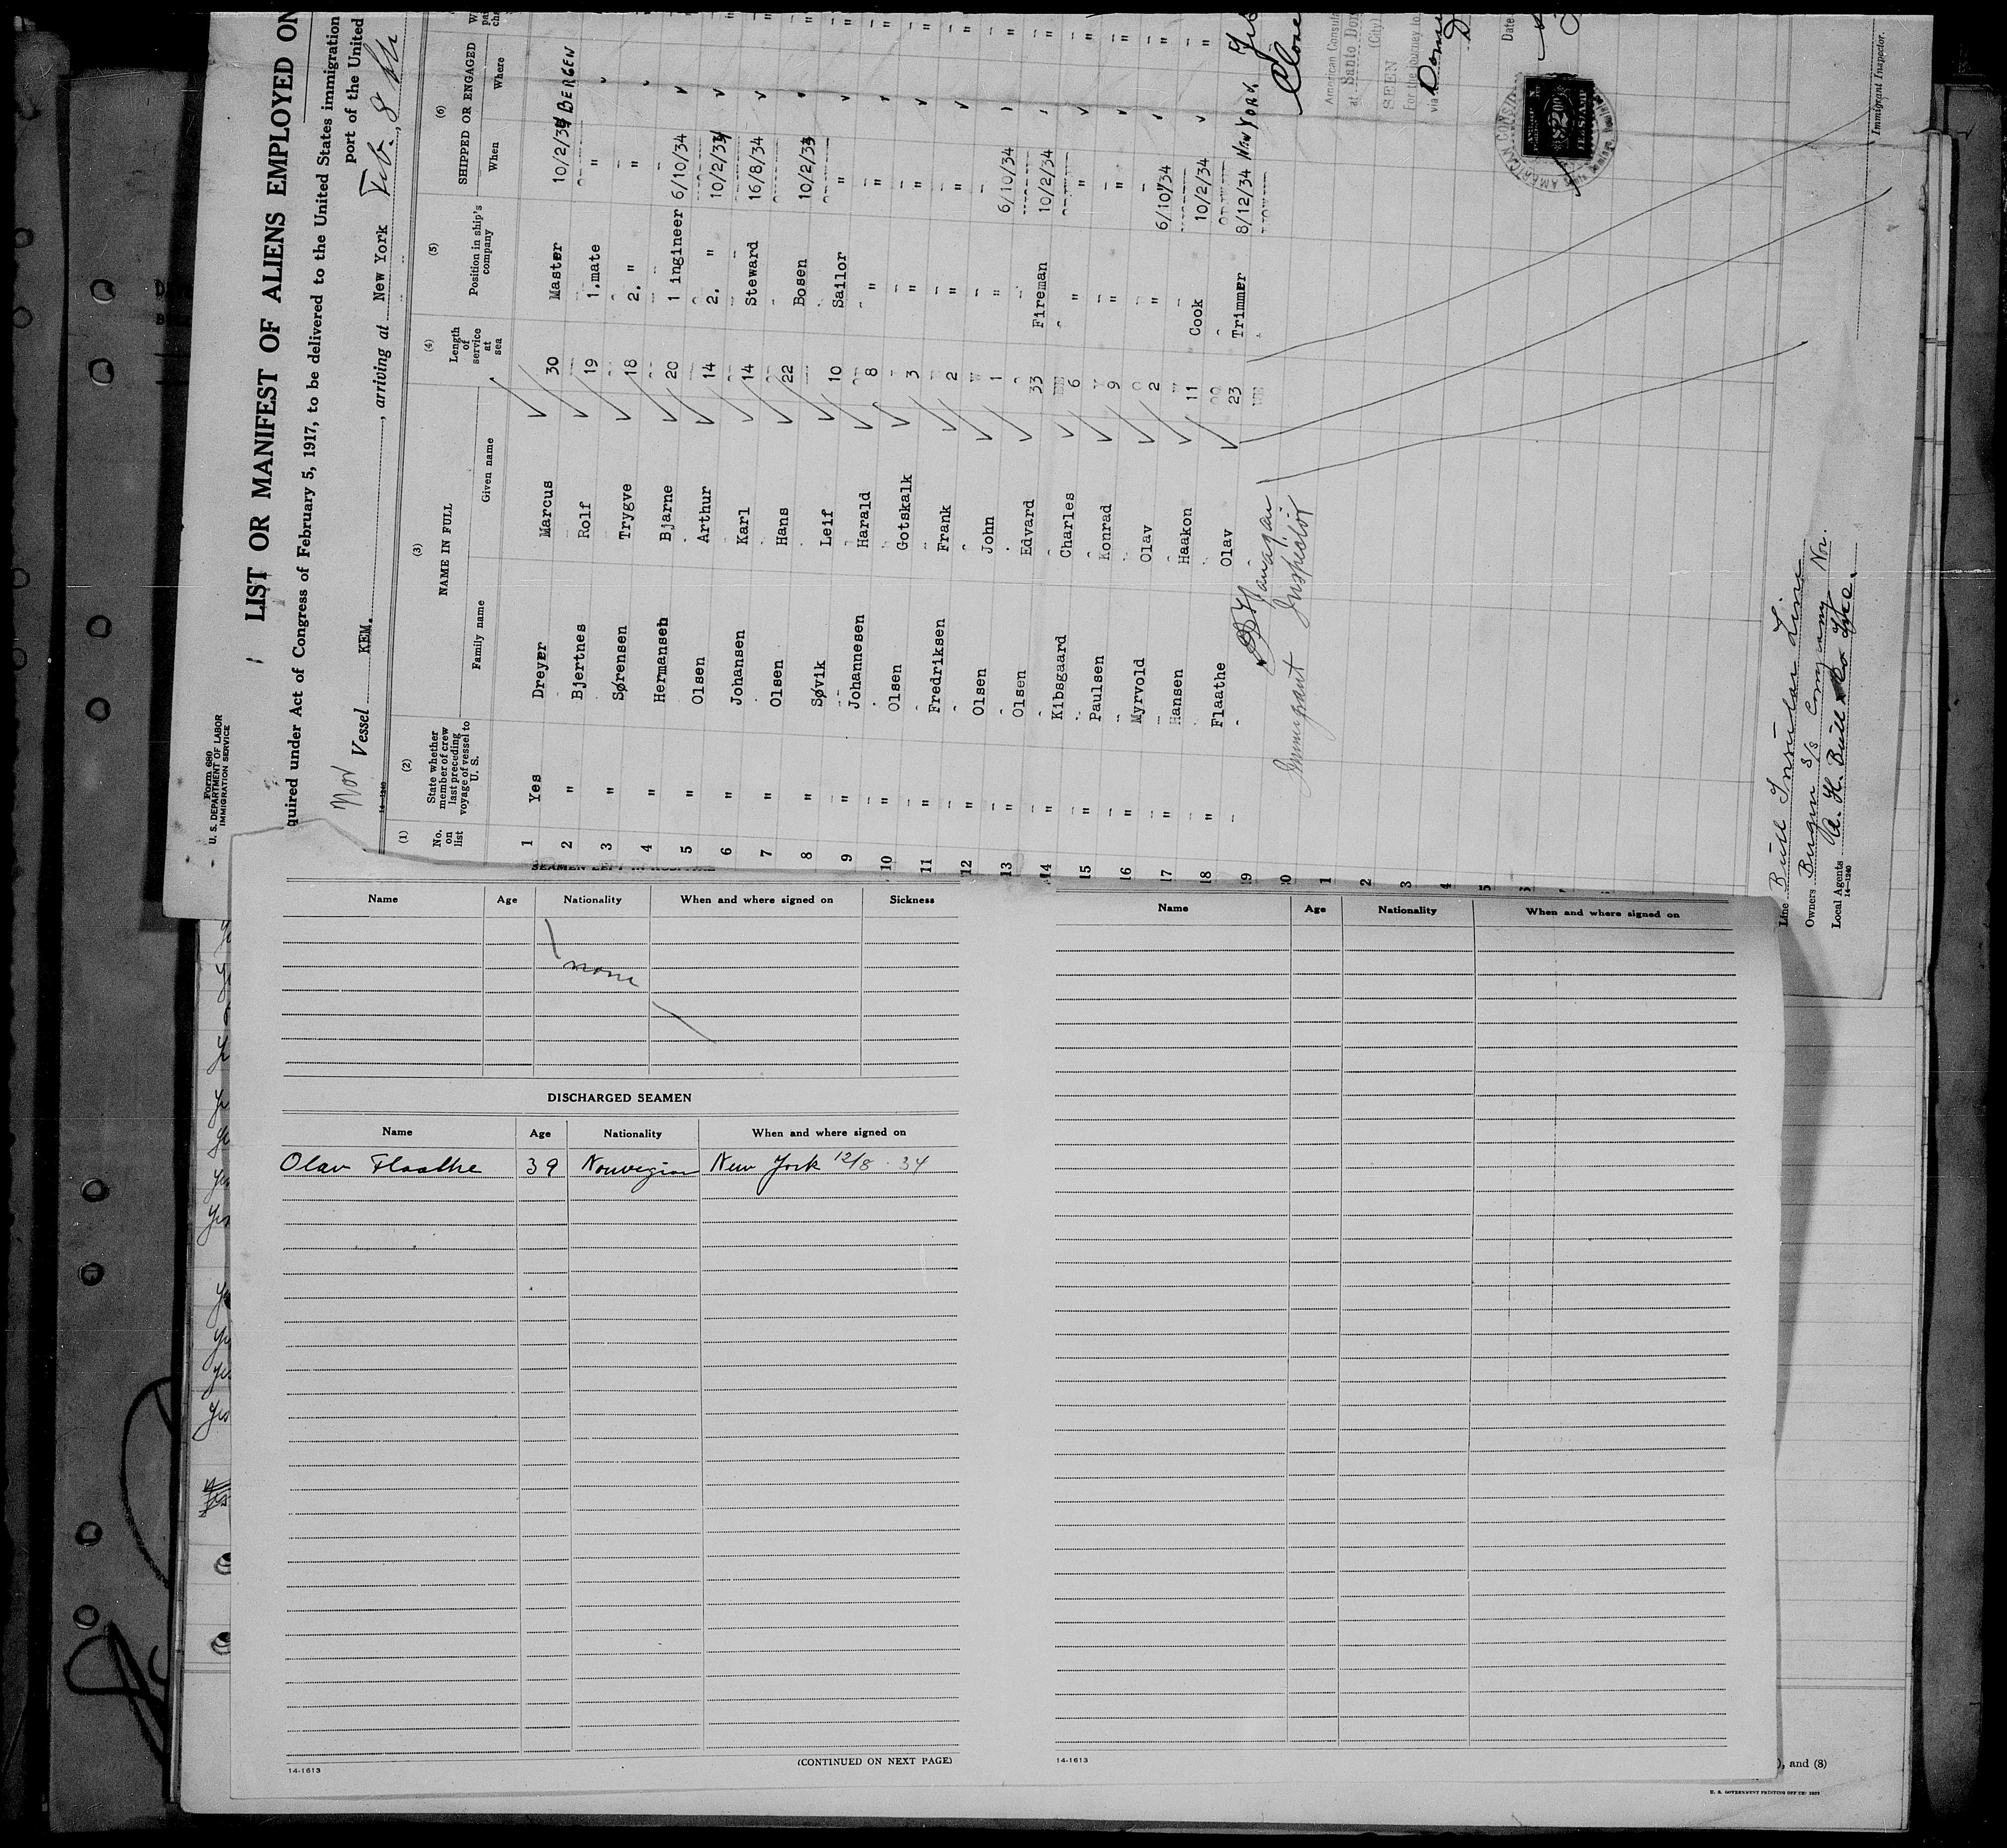 Form 680
U. S. DEPARTMENT OF LABOR
IMMIGRATION SERVICE
LIST OR MANIFEST OF ALIENS EMPLOYED ON
quired under Act of Congress of February 5, 1917, to be delivered to the United States immigration
port of the United
Nor Vessel KEM. , arriving at New York Feb. 8th
14-1240
(1) (2) (3) (4) (5) (6)
No. on list
State whether member of crew last preceding voyage of vessel to U. S.
NAME IN FULL
Family name Given name
Length of service at sea
Position in ship's company
SHIPPED OR ENGAGED
When Where
1 Yes Dreyer Marcus 30 Master 10/2/34 BERGEN
2 " Bjertnes Rolf 19 1.mate "
3 " Sørensen Trygve 18 2. " "
4 " Hermansen Bjarne 20 1 ingineer 6/10/34
5 " Olsen Arthur 14 2. " 10/2/34
6 " Johansen Karl 14 Steward 16/8/34
7 " Olsen Hans 22 Bosen 10/2/34
8 " Søvik Leif 10 Sailor "
9 " Johannesen Harald 8 " "
10 " Olsen Gotskalk 3 " "
11 " Fredriksen Frank 2 " "
12 " Olsen John 1 " 6/10/34
13 " Olsen Edvard 33 Fireman 10/2/34
14 " Kibsgaard Charles 6 " "
15 " Paulsen Konrad 9 " "
16 " Myrvold Olav 2 " 6/10/34
17 " Hansen Haakon 11 Cook 10/2/34
18 " Flaathe Olav 23 Trimmer 8/12/34 NEW YORK
19
Immigrant Inspector
American Consula
at Santo Do
SEEN
(City)
For the journey to
via
Date
AMERICAN CONSUL
Immigrant Inspector.
Line Bull Insular Line
Owners Bergen S/S Company Nor.
Local Agents A. H. Bull & Co Inc.
14-1240
SEAMEN LEFT IN HOSPITAL
Name Age Nationality When and where signed on Sickness
none
DISCHARGED SEAMEN
Name Age Nationality When and where signed on
Olav Flaathe 39 Norwegian New York 12/8 - 34
(CONTINUED ON NEXT PAGE)
14-1613
Name Age Nationality When and where signed on
14-1613
), and (8)
U. S. GOVERNMENT PRINTING OFFICE